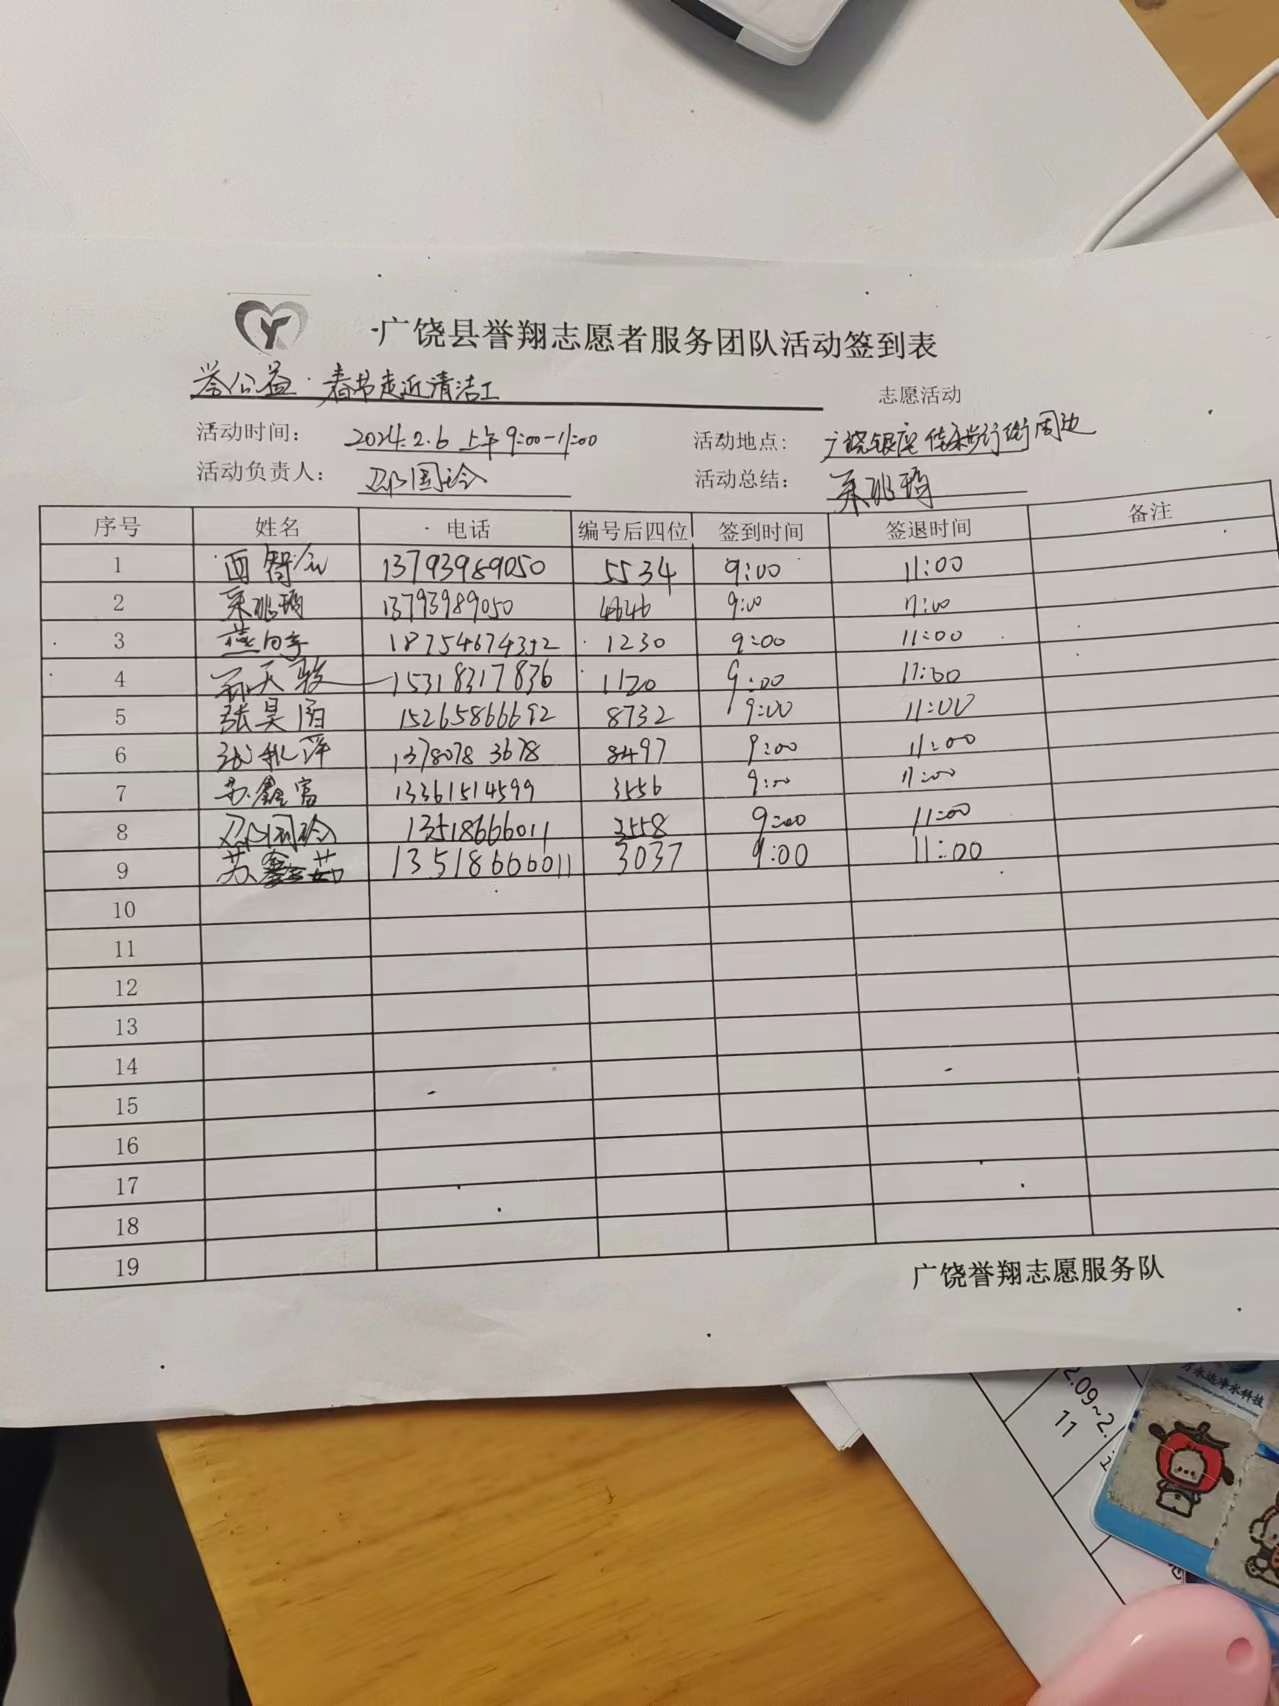 广饶县誉翔志愿者服务团队活动签到表
誉公益·春节走近清洁工 志愿活动
活动时间: 2024.2.6 上午9:00-11:00 活动地点: 广饶银座佳乐步行街周边
活动负责人: 邓国玲 活动总结:
序号 姓名 电话 编号后四位 签到时间 签退时间 备注
1 13793989050 5534 9:00 11:00
2 13793989050 4646 9:00 11:00
3 18754674392 1230 9:00 11:00
4 15318317836 1120 9:00 11:00
5 张昊雨 15265866692 8732 9:00 11:00
6 张秋萍 13780783678 8497 9:00 11:00
7 苏鑫富 13361514599 3556 9:00 11:00
8 邓国玲 13518666011 3558 9:00 11:00
9 苏鑫茹 13518666011 3037 9:00 11:00
10
11
12
13
14
15
16
17
18
19
广饶誉翔志愿服务队
2.09~2.
11
水达净水科技